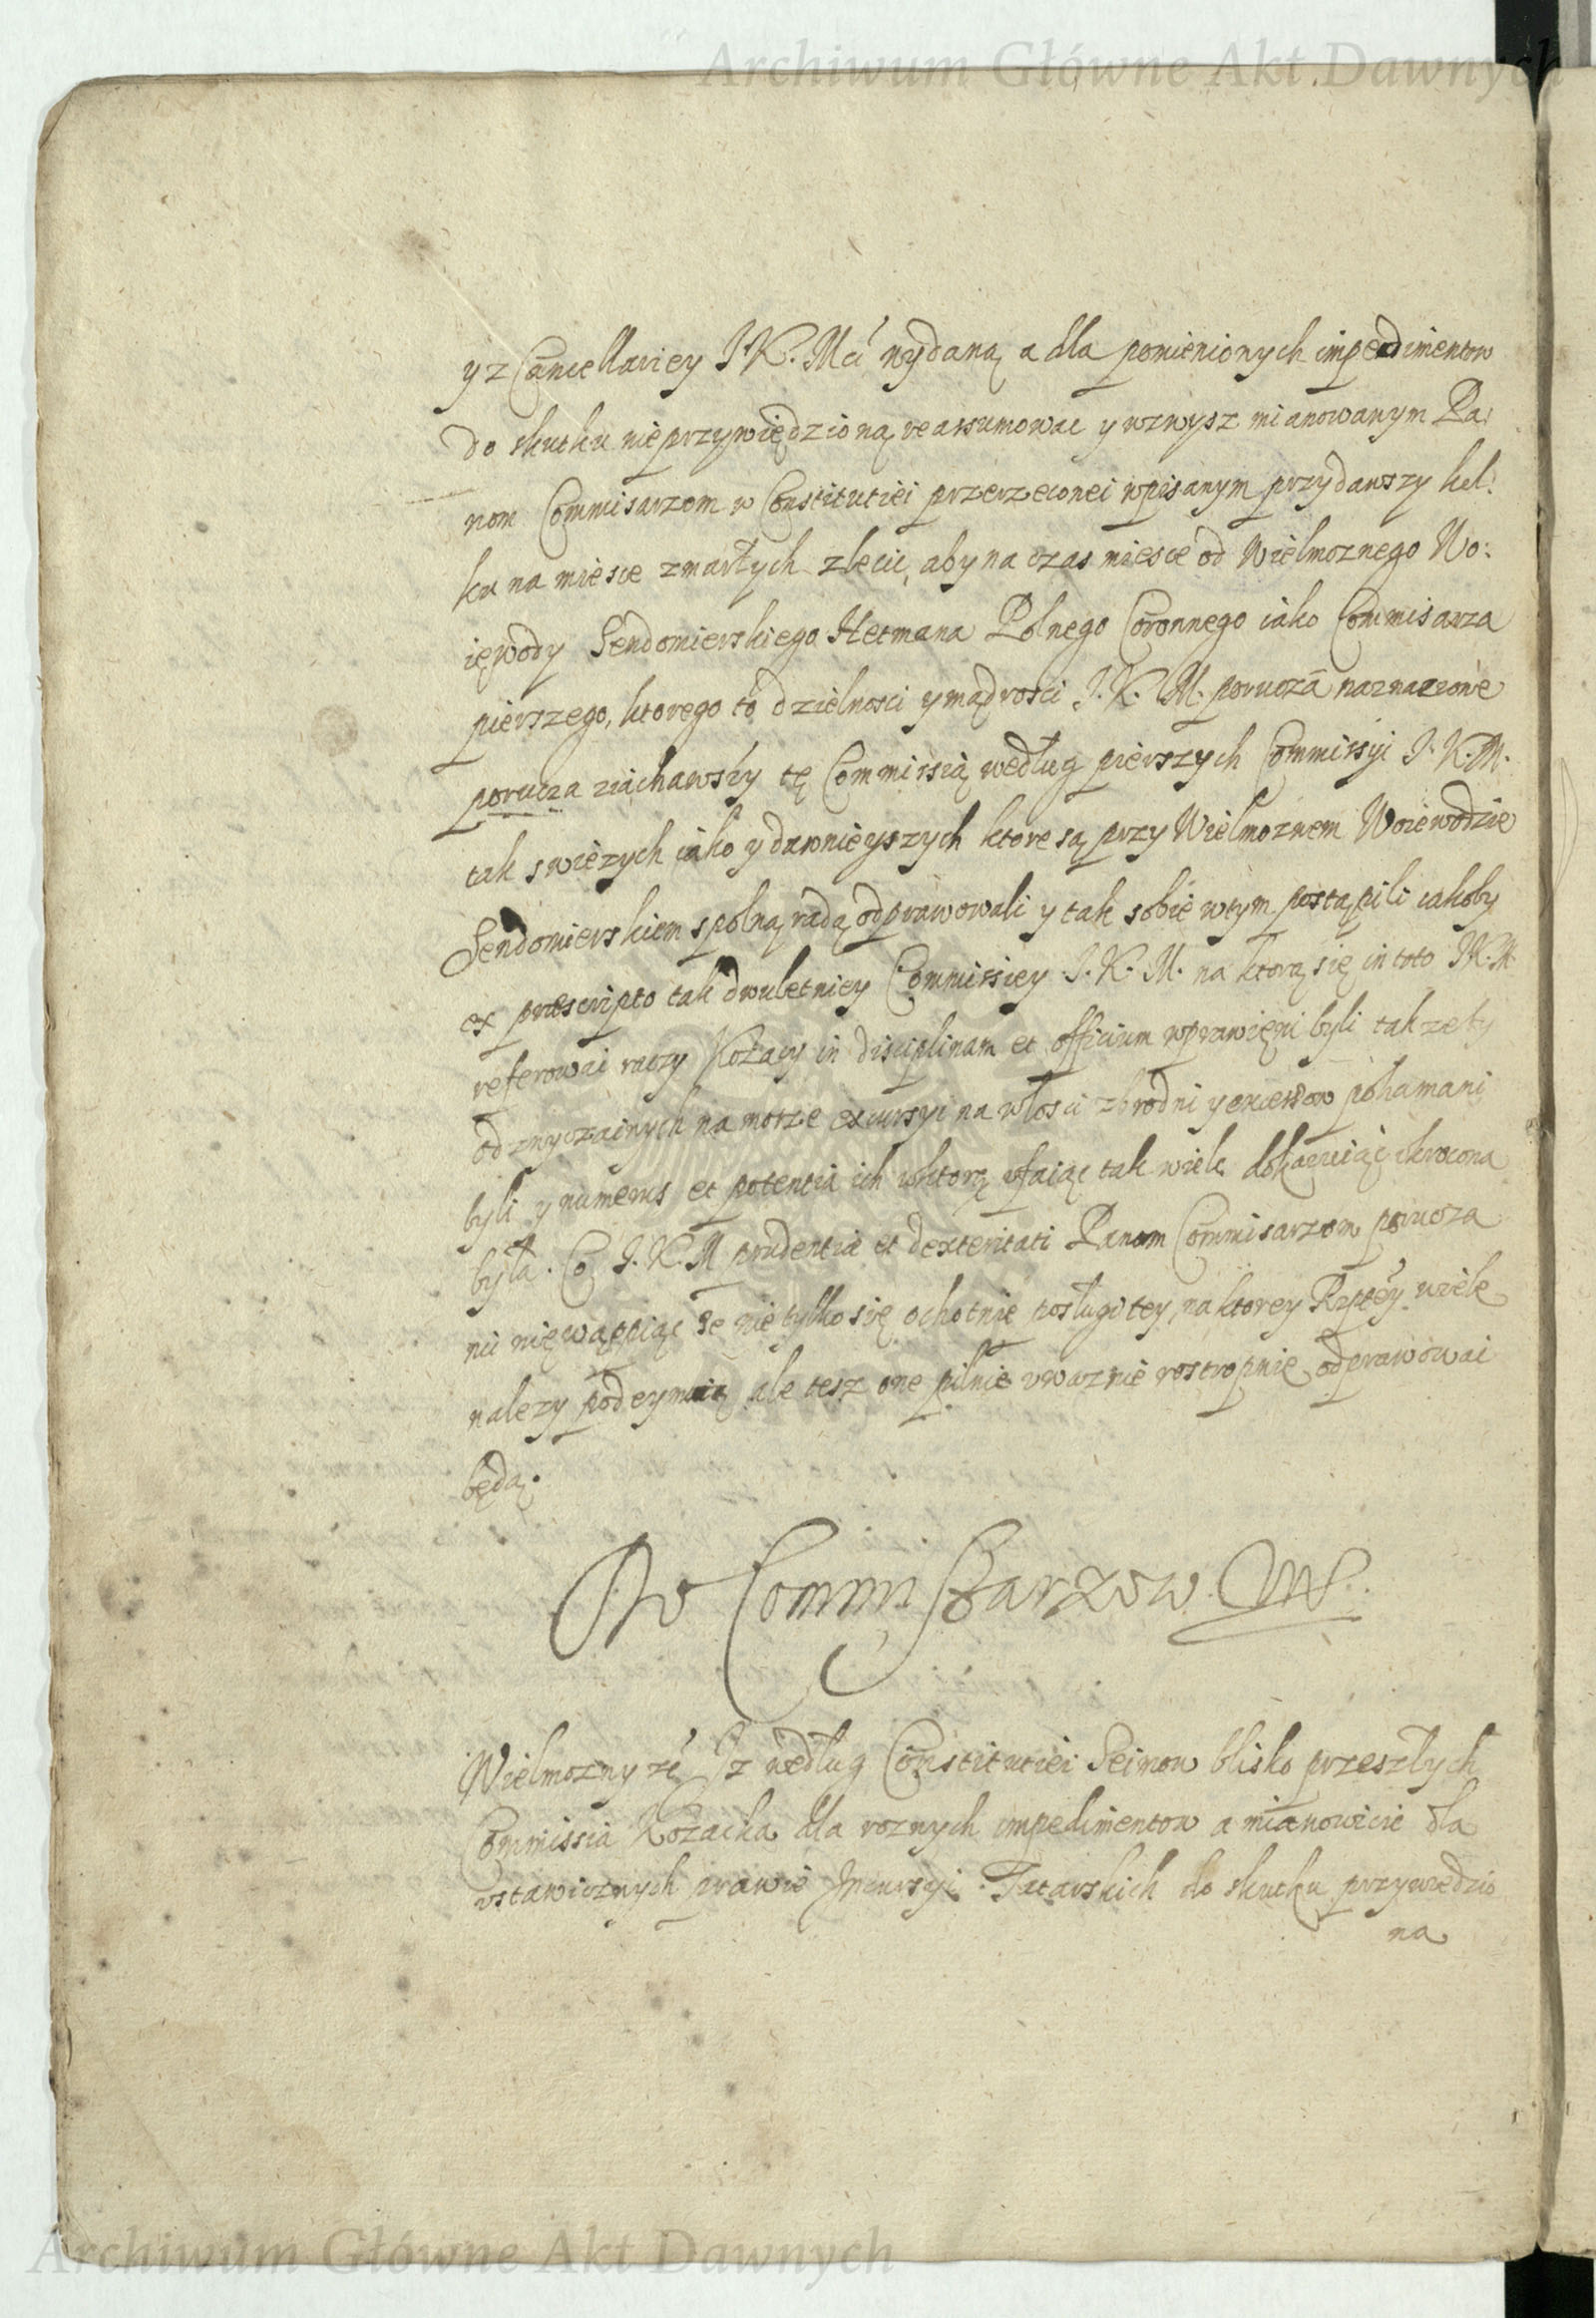 Archiwum Główne Akt Dawnych
y z Cancellariey J K. Mci wydaną a dla pomienionych impedimentow
do skutku nie przywiędzioną reassumowac y wzwysz mianowanym Pa:
nom Commisarzom w Constitutiei przerzeconei wpisanym przydawszy kil:
ku na miesce zmarłych zlecic, aby na czas miesce od Wielmoznego Wo:
iewody Sendomierskiego Hetmana Polnego Coronnego iako Commisarza
pierszego, ktorego to dzielnosci y mądrosci J. K. M. porucza naznaczone
porucza ziachawszy tę Commissią według pierszych Commissyi J. K. M.
tak swiezych iako y dawnieyszych ktore są przy Wielmoznem Woiewodzie
Sendomierskiem spolną radą odprawowali y tak sobie wtym postąpili iakoby
ex prescripto tak dwuletniey Commissiey J. K. M. na ktorą się in toto J K. M
referowai raczy Kozacy in disciplinam et officium wprawięni byli takzeby
od zwyczainych na morze excursyi na włosci zbrodni y excessow pohamani
byli y numerus et potentia ich wktorą ufaiąc tak wiele dokazuią ukrocona
była. Co J. K. M prudentiæ et dexteritati Panom Commisarzom porucza
nic nięwątpiąc ze nie tylko się ochotnie posługi tey, na ktorey Rzptey wiele
nalezy podeymuią ale tesz one pilnie uwaznie rostropnie odprawowai
będą.
Do Commissarzow
Wielmozny Iz według Constitutiei Seimow blisko przeszłych
Commissia Kozacka dla roznych impedimentow a mianowicie dla
ustawicznych prawie Incursyi Tatarskich do skutku przywiedzio
na
Archiwum Główne Akt Dawnych